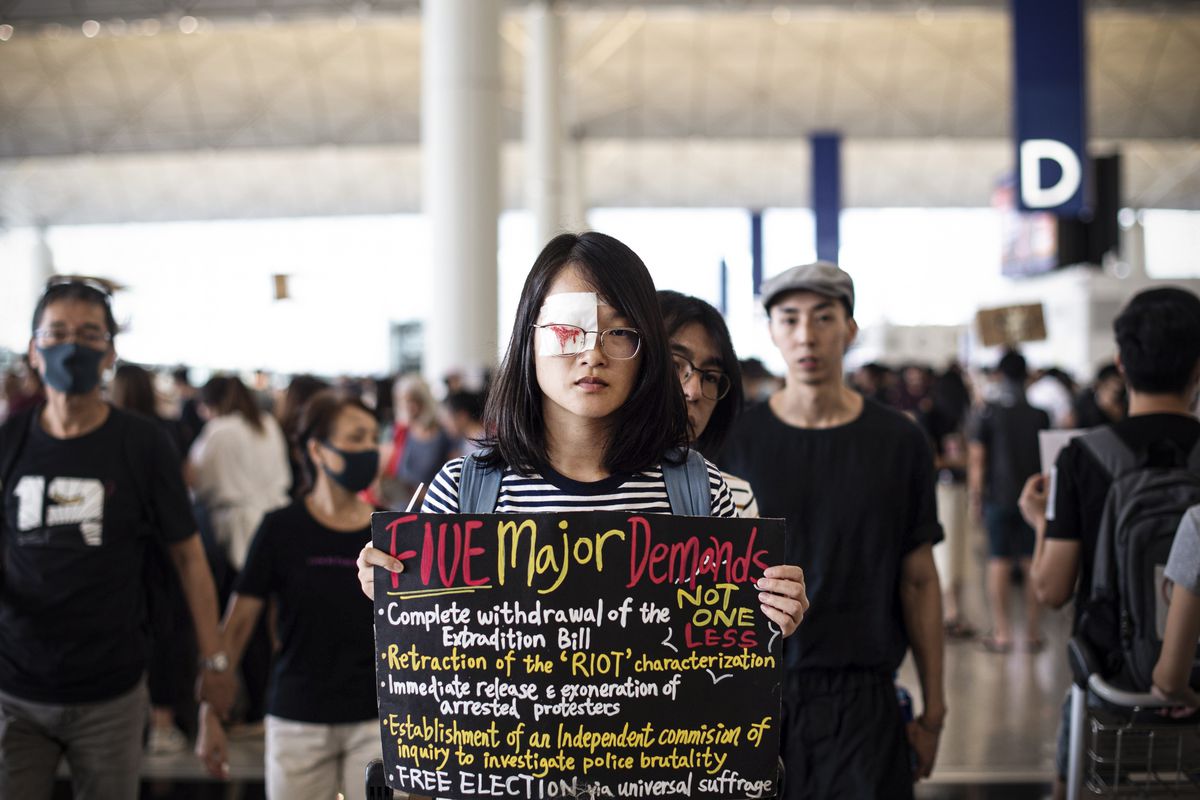 D
17
FIVE Major Demands
NOT
ONE
LESS
· Complete withdrawal of the
Extradition Bill
· Retraction of the 'RIOT' characterization
· Immediate release & exoneration of
arrested protesters
· Establishment of an Independent commision of
inquiry to investigate police brutality
· FREE ELECTION via universal suffrage